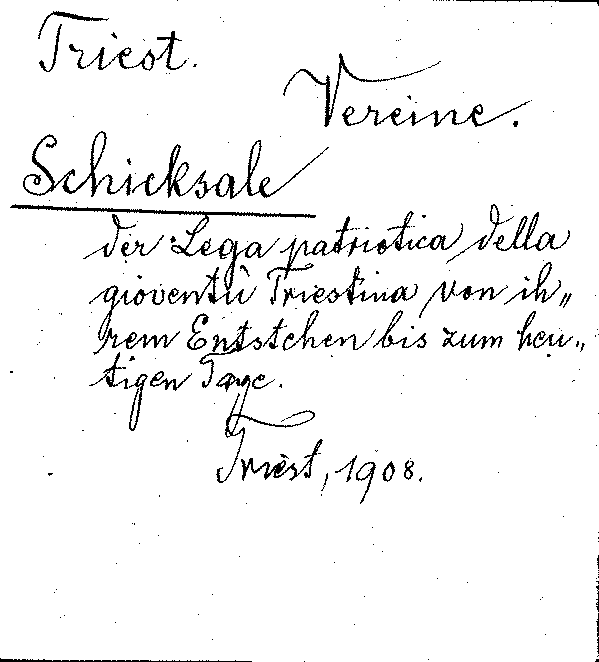 Triest.
Vereine.
Schicksale
der Lega patriotica della
gioventù Triestina von ih„
rem Entstehen bis zum heu„
tigen Tage.
Triest, 1908.